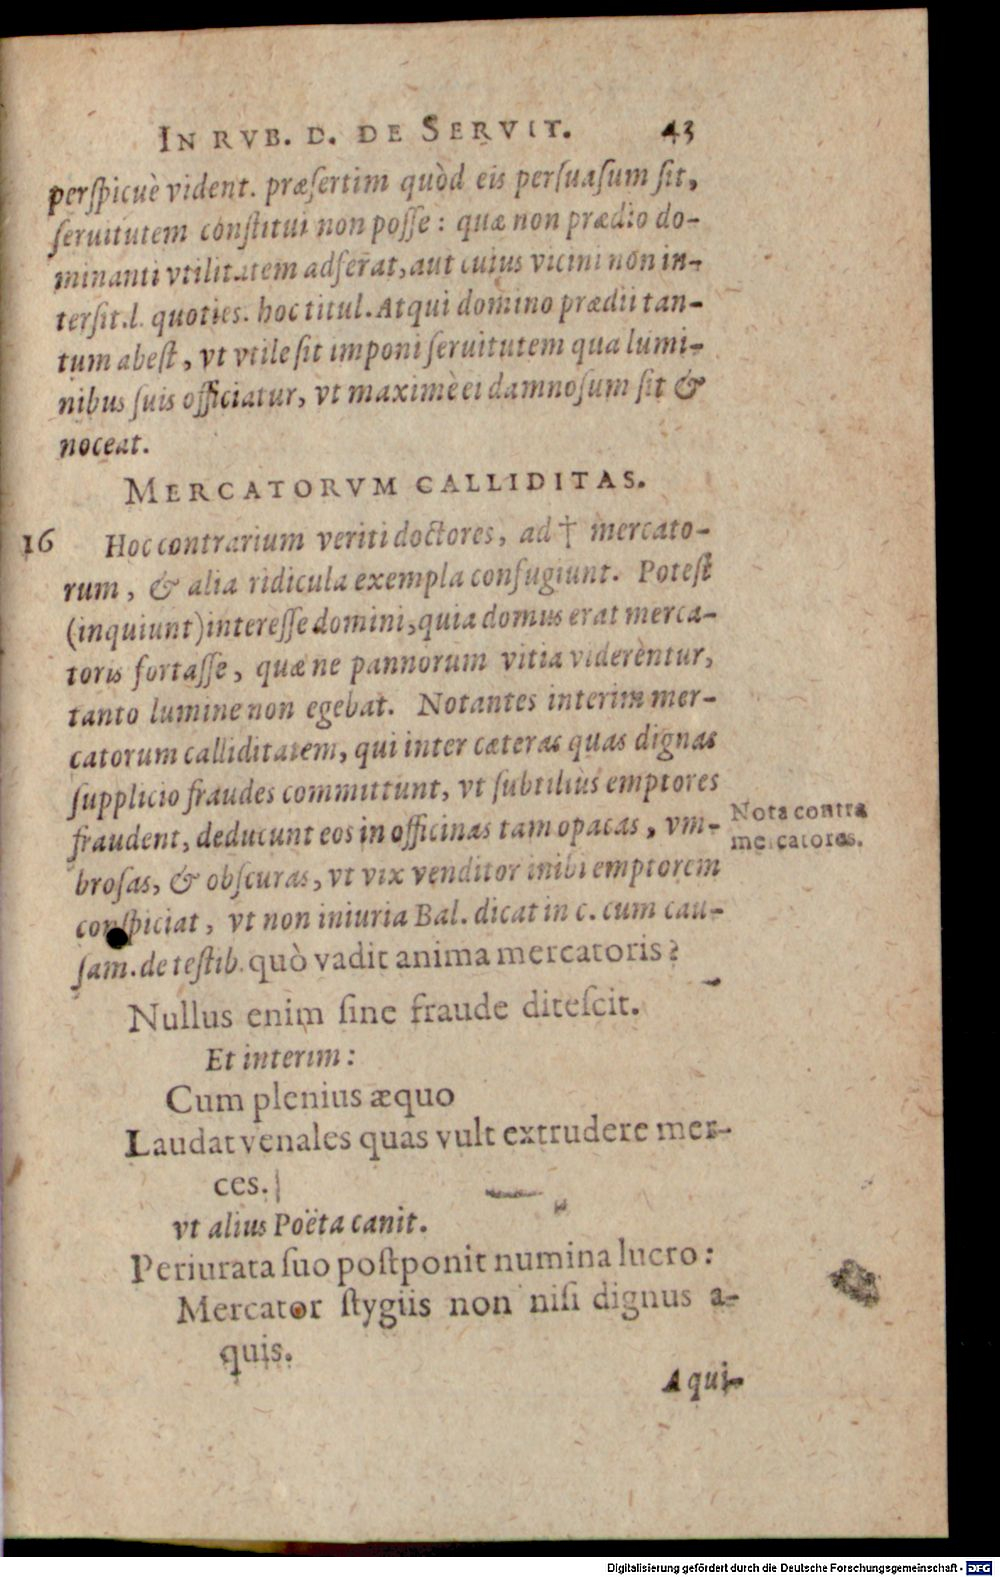 IN RVB. D. DE SERVIT. 43
perſpicuè vident. præſertim quòd eis perſuaſum ſit,
ſeruitutem conſtitui non poſſe: quæ non prædio do-
minanti vtilitatem adferat, aut cuius vicini non in-
terſit. l. quoties. hoc titul. Atqui domino prædii tan-
tum abeſt, vt vtile ſit imponi ſeruitutem qua lumi-
nibus ſuis officiatur, vt maximè ei damnoſum ſit &
noceat.
MERCATORVM CALLIDITAS.
16 Hoc contrarium veriti doctores, ad † mercato-
rum, & alia ridicula exempla confugiunt. Poteſt
(inquiunt) intereſſe domini, quia domus erat merca-
toris fortaſſe, quæ ne pannorum vitia viderentur,
tanto lumine non egebat. Notantes interim mer-
catorum calliditatem, qui inter cæteras quas dignas
ſupplicio fraudes committunt, vt ſubtilius emptores
fraudent, deducunt eos in officinas tam opacas, vm-
broſas, & obſcuras, vt vix venditor inibi emptorem
conſpiciat, vt non iniuria Bal. dicat in c. cum cau-
ſam. de teſtib. quò vadit anima mercatoris?
Nota contra
mercatores.
Nullus enim ſine fraude diteſcit.
Et interim:
Cum plenius æquo
Laudat venales quas vult extrudere mer-
ces.
vt alius Poëta canit.
Periurata ſuo poſtponit numina lucro:
Mercator ſtygiis non niſi dignus a-
quis.
Aqui-
Digitalisierung gefördert durch die Deutsche Forschungsgemeinschaft - DFG